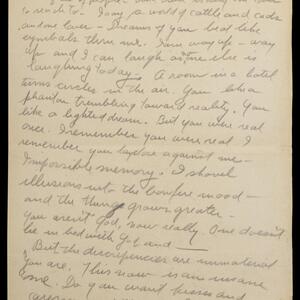 to rush to. I am a world of cattle and cads
and one lover - Dreams of you beat like
cymbals thru me. I'm way up - way
up and I can laugh as no one else is
laughing today. A room in a hotel
turns circles in the air. You like a
phantom trembling toward reality. You
like a lighted dream. But you were real
once. I remember you were real I
remember you before against me -
Impossible memory. I shovel
illusions into the bonfire mood -
and the thing grows greater -
You aren't God, now really. One doesn't
lie in bed with God and -
But the discrepencies are immaterial
You are. This now is an insane
one. Do you want kisses and